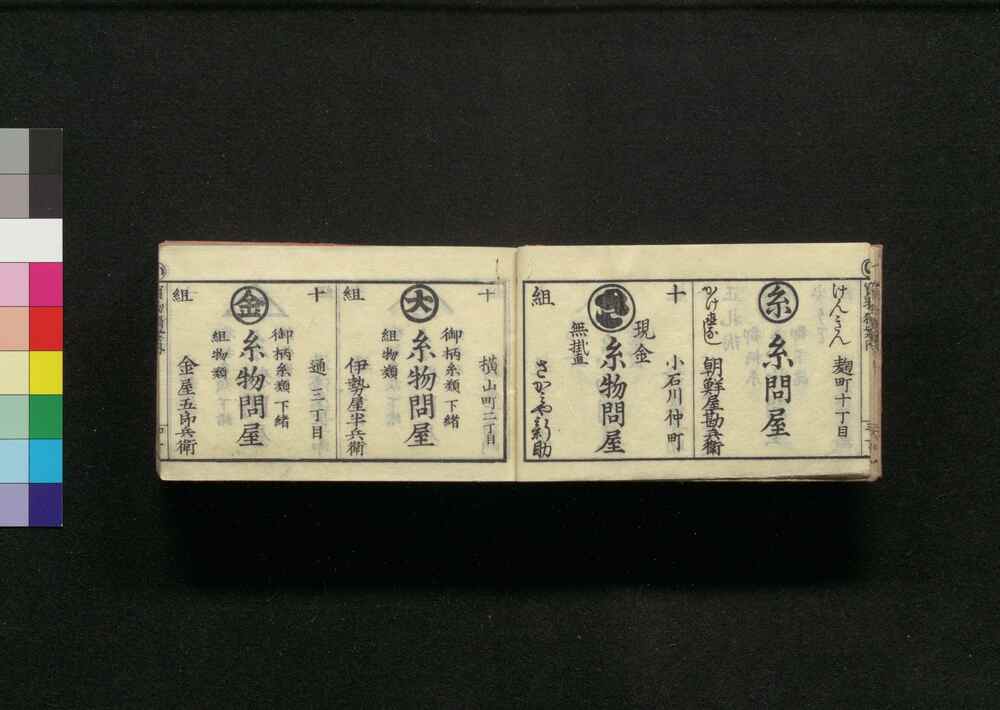 けんきん 麹町十丁目
糸
糸問屋
かけ直なし 朝鮮屋勘兵衛
十 小石川仲町
現金
糸物問屋
無掛直
組 さかや新助
十 横山町二丁目
御柄糸類 下緒
大
糸物問屋
組物類
組 伊勢屋半兵衛
十 通三丁目
御柄糸類 下緒
金
糸物問屋
組物類
組 金屋五郎兵衛